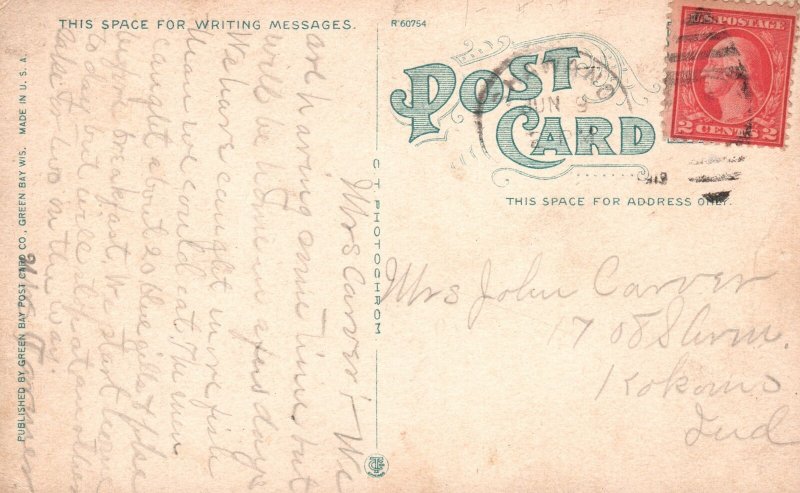 THIS SPACE FOR WRITING MESSAGES.
R'60754
POST CARD
THIS SPACE FOR ADDRESS ONLY.
U.S. POSTAGE
2 CENTS 2
JUN 9
Mrs John Carver
1708 S
Kokomo
Ind
Mrs Carver:- We
are having some time but
will be home in a few days
We have caught more fish
than we could eat. The men
caught about 20 blue gills
before breakfast. We start home
today but will stop at another
lake or two on the way.
C.T. PHOTOCHROM
PUBLISHED BY GREEN BAY POST CARD CO., GREEN BAY WIS. MADE IN U.S.A.